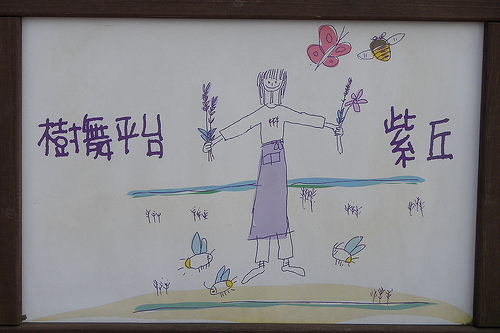 樹舞平台
紫丘